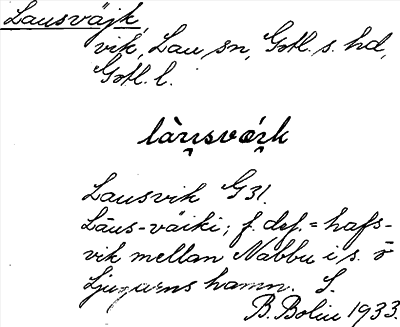 Lausväjk,
vik, Lau sn, Gotl. s. hd,
Gotl. l.
Lausvik G31.
Läus-väiki; f. def. = hafs-
vik mellan Nabbu i s. o
Ljugarns hamn. S.
B. Bolin 1933.